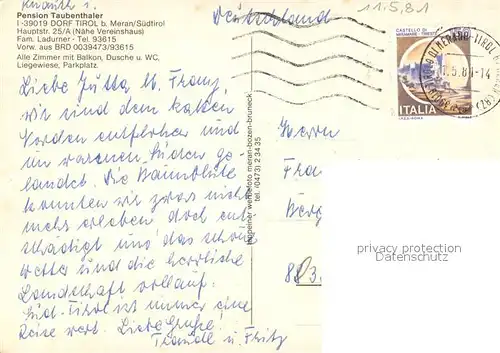 Pension Taubenthaler
I-39019 DORF TIROL b. Meran/Südtirol
Hauptstr. 25/A (Nähe Vereinshaus)
Fam. Ladurner - Tel. 93615
Vorw. aus BRD 0039473/93615
Alle Zimmer mit Balkon, Dusche u. WC,
Liegewiese, Parkplatz.
Liebe Jutta u. Franz,
wir sind dem kalten
Norden entflohen und
im warmen Süden ge
landet. Die Baumblüte
konnten wir zwar nicht
mehr erleben doch ent
schädigt uns das schöne
Wetter und die herrliche
Landschaft vollauf.
Süd-Tirol ist immer eine
Reise wert. Liebe Grüße
Traudl u. Fritz
tappeiner werbefoto meran-bozen-bruneck
tel. (0473) 2 34 35
Deutschland
11.5.81
CASTELLO DI
MIRAMARE TRIESTE
ITALIA
Herrn
Fra
Berg
privacy protection
Datenschutz